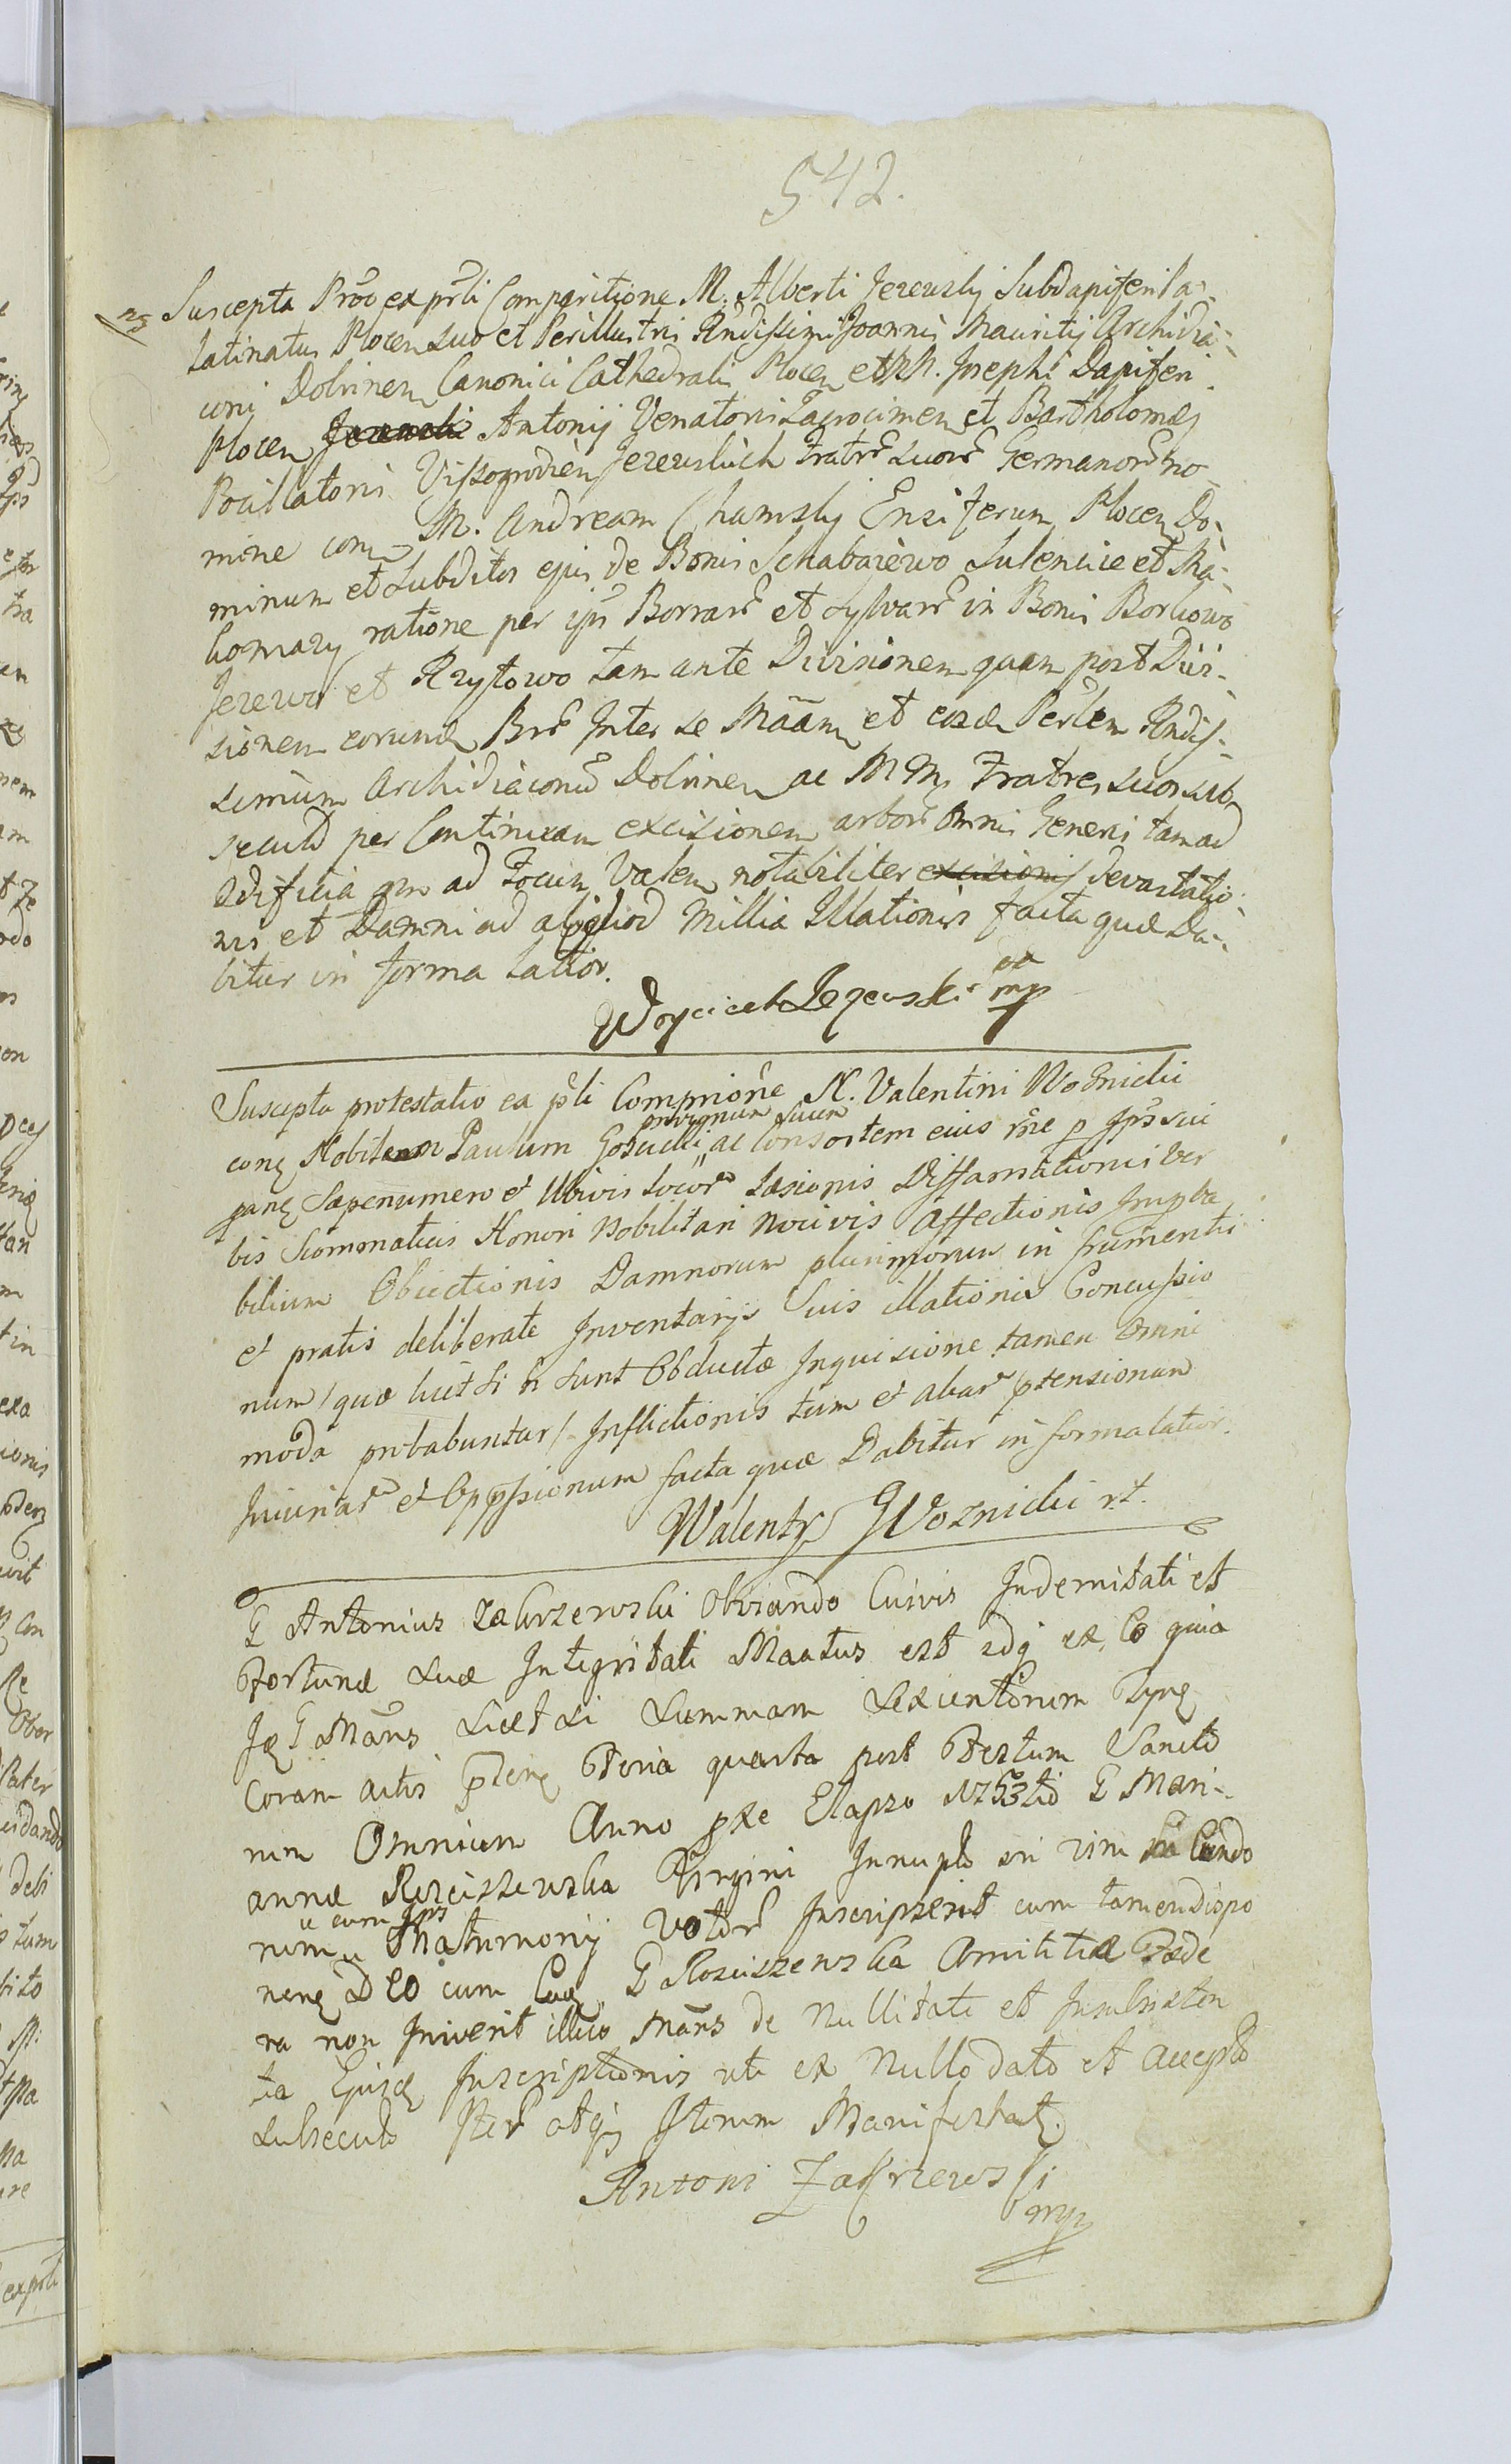 542.
Suscepta Prõo ex prñli Comparitione M. Alberti Jezewskij Subdapiferi Pa-
latinatus Plocen suo et Perillustris Rndissimi Joannis Mauritij Archidia-
coni Dobrinen Canonici Cathedralis Plocen et MM. Josephi Dapiferi
Plocen Antonij Venatoris Zacrocimen et Bartholomæi
Pocillatoris Vissogrodien Jezewskich Fratrũ suorũ Germanorũ no-
mine con M. Andream Chamskij Ensiferum Plocen Do-
minum et subditos ejus de Bonis Schabajewo Sulencice et
ratione per ips Borrarũ et Sylvarũ in Bonis Borkowo
Jezewo et Krzystowo tam ante Divisionem quam post Divi-
sionem eorund Brũ Inter se Mãam et eosd Perlem Rndis-
simum Archidiaconũ Dobrinen ac MM. Fratres suos sub
seculd per Continuam excisionem arborũ omnis Generis tam ad
ædificia qm ad Focum Valen notabiliter excisionis devastatio-
nis et Damni ad aliquod Millia Illationis facta quæ Da-
bitur in forma latior.
Woyciech Jezewski mp
Suscepta protestatio ex prli Comprione N. Valentini Woznicki
privignum suum
con Nobilem Paulum Gosucki ac Consortem eius rõe p Ips sui
Sæpenumero et Ubivis locorũ Læsionis Diffamationis Ver
bis Scommaticis Honori Nobilitari Nocivis Affectionis Improba
bilium Obiectionis Damnorum plurimorum in frumentis
et pratis deliberate Inventarys Suis illationis Concussio
num / quæ licet si n sunt Obductæ Inquisione tamen Omni
moda probabuntur / Inflictionis tum et aliarũ ptensionum
Iniuriarũ et Oppssionum facta quæ Dabitur in forma latior.
Walenty Woznicki rt.
G Antonius Zakrzewski Obviando Cuivis Indemnitati et
Fortunæ suæ Integritati Maatus est idq ex Eo quia
Id G Mans Licet si Summam Sexcentorum Tynf
Coram actis pten Feria quarta post Festum Sancto
rum Omnium Anno pxe Elapso 1753tio G Mari-
annæ Rosciszewska Virgini Innuptæ in vim Secundo
u cum Ips
rum Matrimonij Votorũ Inscripserit cum tamen dispo
nen DEO cum Ead G Rosciszewska Amititiæ Fæde
ra non Iniverit illico Mans de Nullitate et Insubsisten
tia Ejusd Inscriptionis uti ex Nullo dato et accepto
subsecuto Iterũ atq Iterum Manifestat.
Antoni Zakrzewski
mp